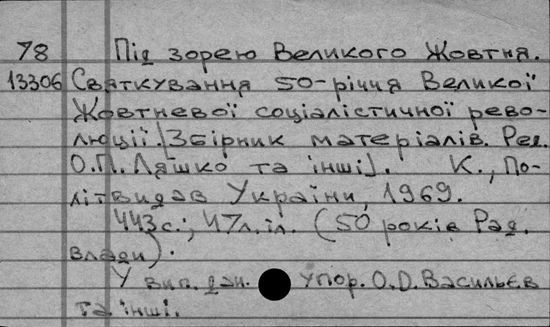 78 Під зорею Великого Жовтня.
13306 Святкування 50-річчя Великої
Жовтневої соціалістичної рево-
люції. [Збірник матеріалів. Ред.
О.П. Ляшко та інші]. К., По-
літвидав України, 1969.
443 с.; 47 л. іл. (50 років Рад.
влади).
У вип. дан. упор. О.D. Васильєв
та інші.